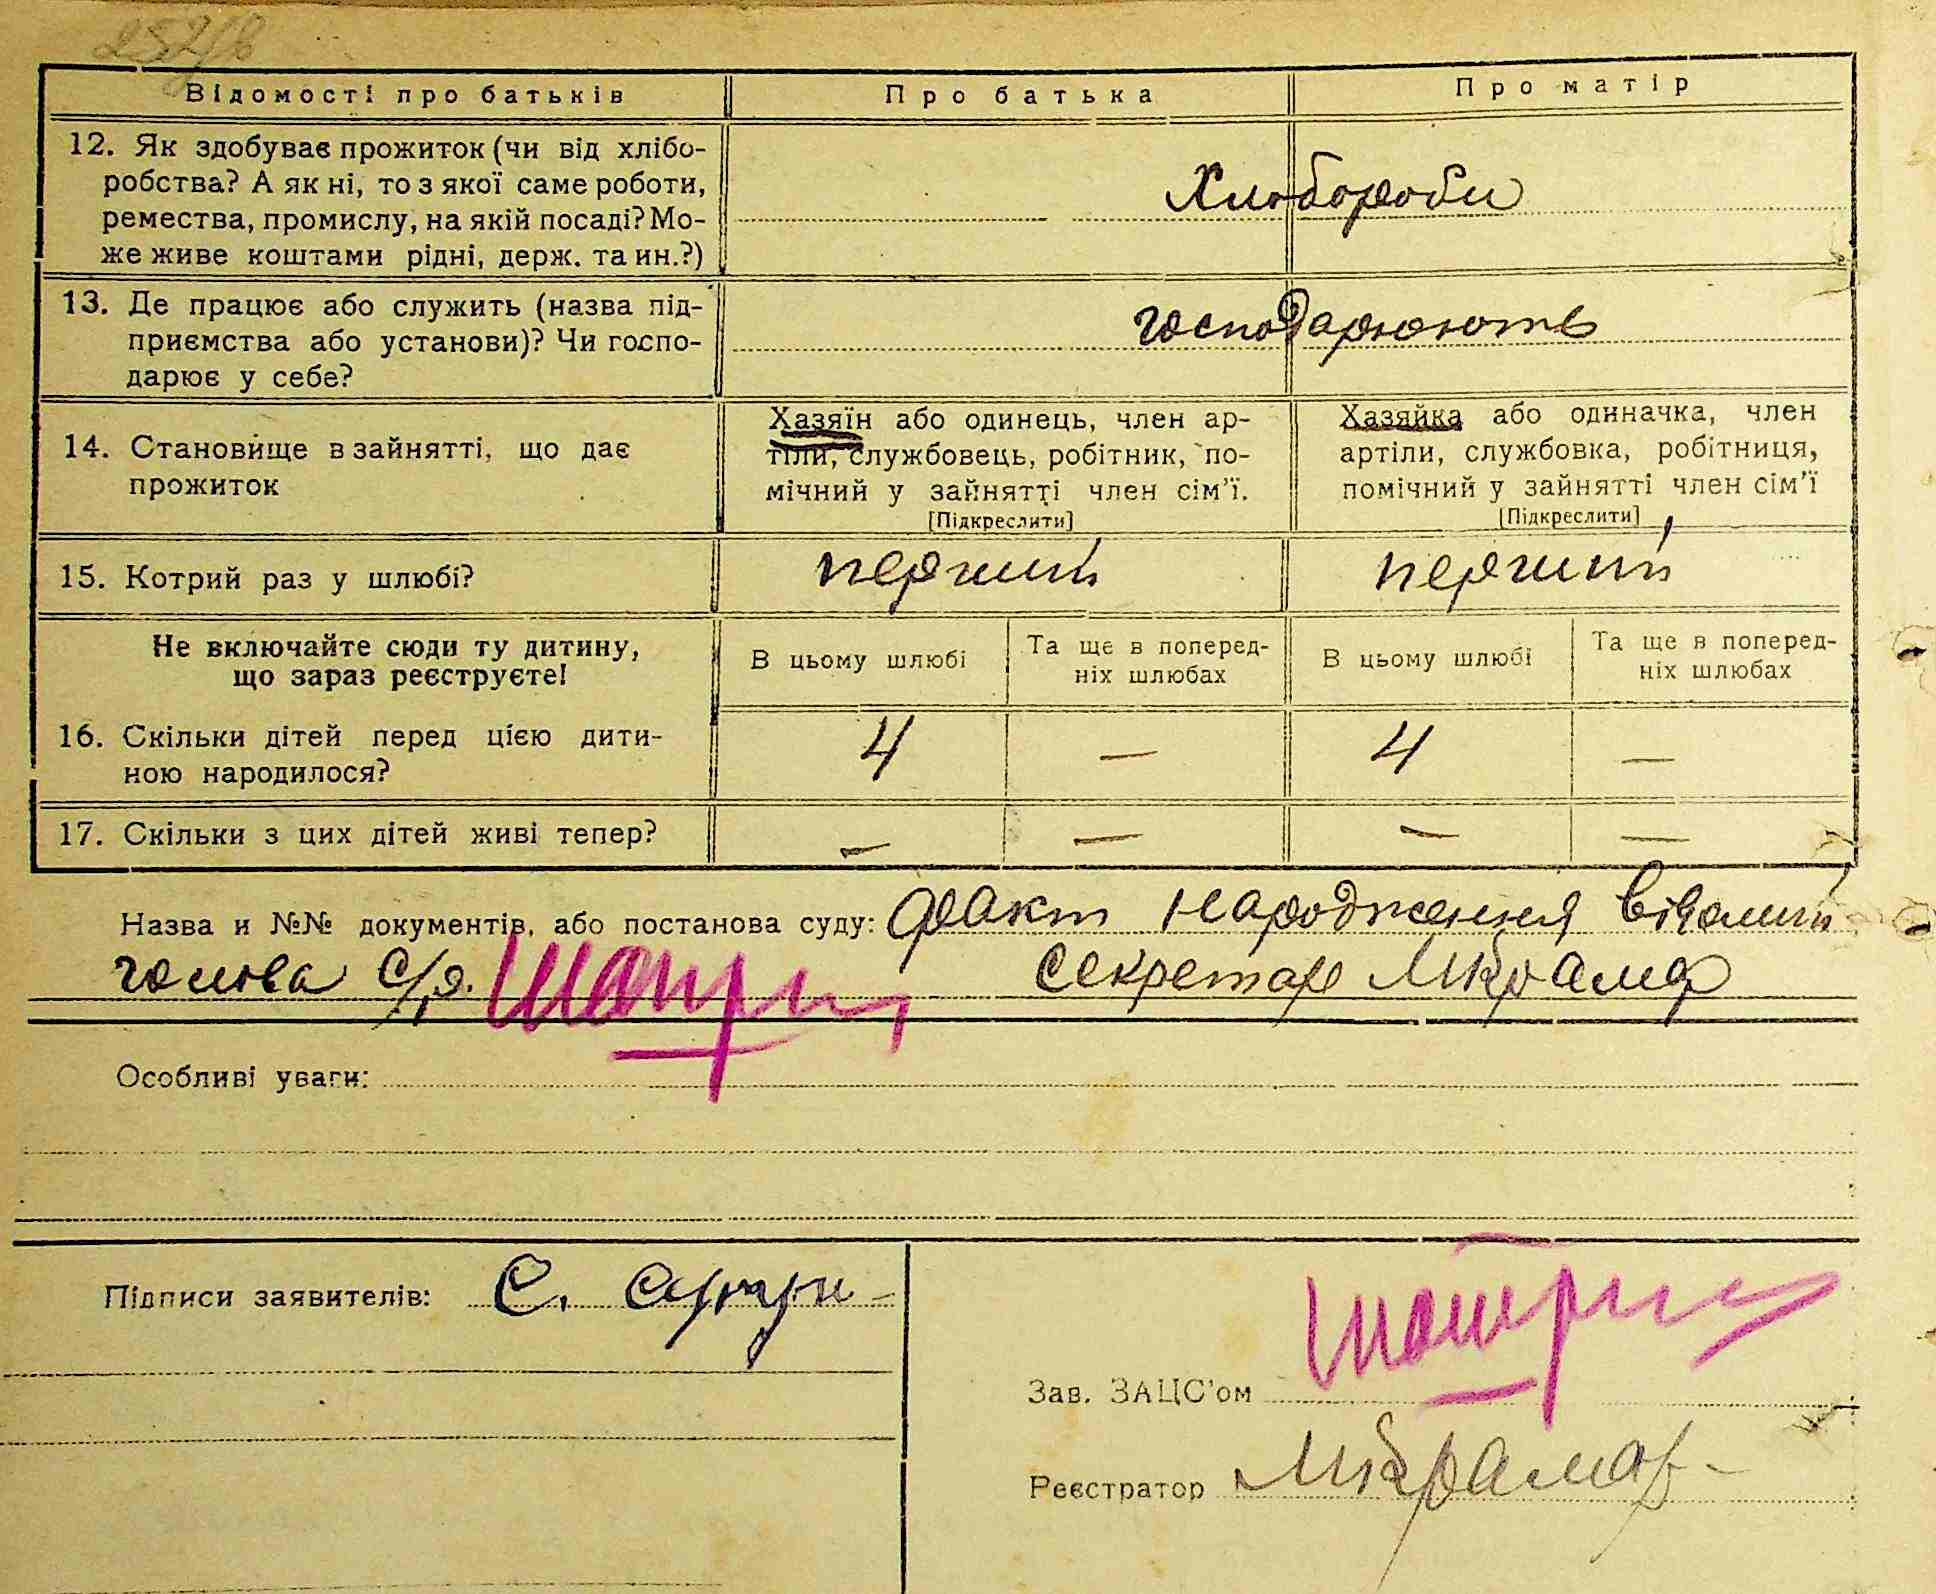 252/в
Відомості про батьків
Про батька
Про матір
12. Як здобуває прожиток (чи від хлібо-
робства? А як ні, то з якої саме роботи,
ремества, промислу, на якій посаді? Мо-
же живе коштами рідні, держ. та ин.?)
Хлібороби
13. Де працює або служить (назва під-
приємства або установи)? Чи госпо-
дарює у себе?
господарюють
14. Становище в зайнятті, що дає
прожиток
Хазяїн або одинець, член ар-
тіли, службовець, робітник, по-
мічний у зайнятті член сім'ї.
[Підкреслити]
Хазяйка або одиначка, член
артіли, службовка, робітниця,
помічний у зайнятті член сім'ї
[Підкреслити]
15. Котрий раз у шлюбі?
перший
перший
Не включайте сюди ту дитину,
що зараз реєструєте!
В цьому шлюбі
Та ще в поперед-
ніх шлюбах
В цьому шлюбі
Та ще в поперед-
ніх шлюбах
16. Скільки дітей перед цією дити-
ною народилося?
4
—
4
—
17. Скільки з цих дітей живі тепер?
—
—
—
—
Назва и №№ документів, або постанова суду: факт народження відомий
голова с/р. секретар
Особливі уваги:
Підписи заявителів: С.
Зав. ЗАЦС'ом
Реєстратор